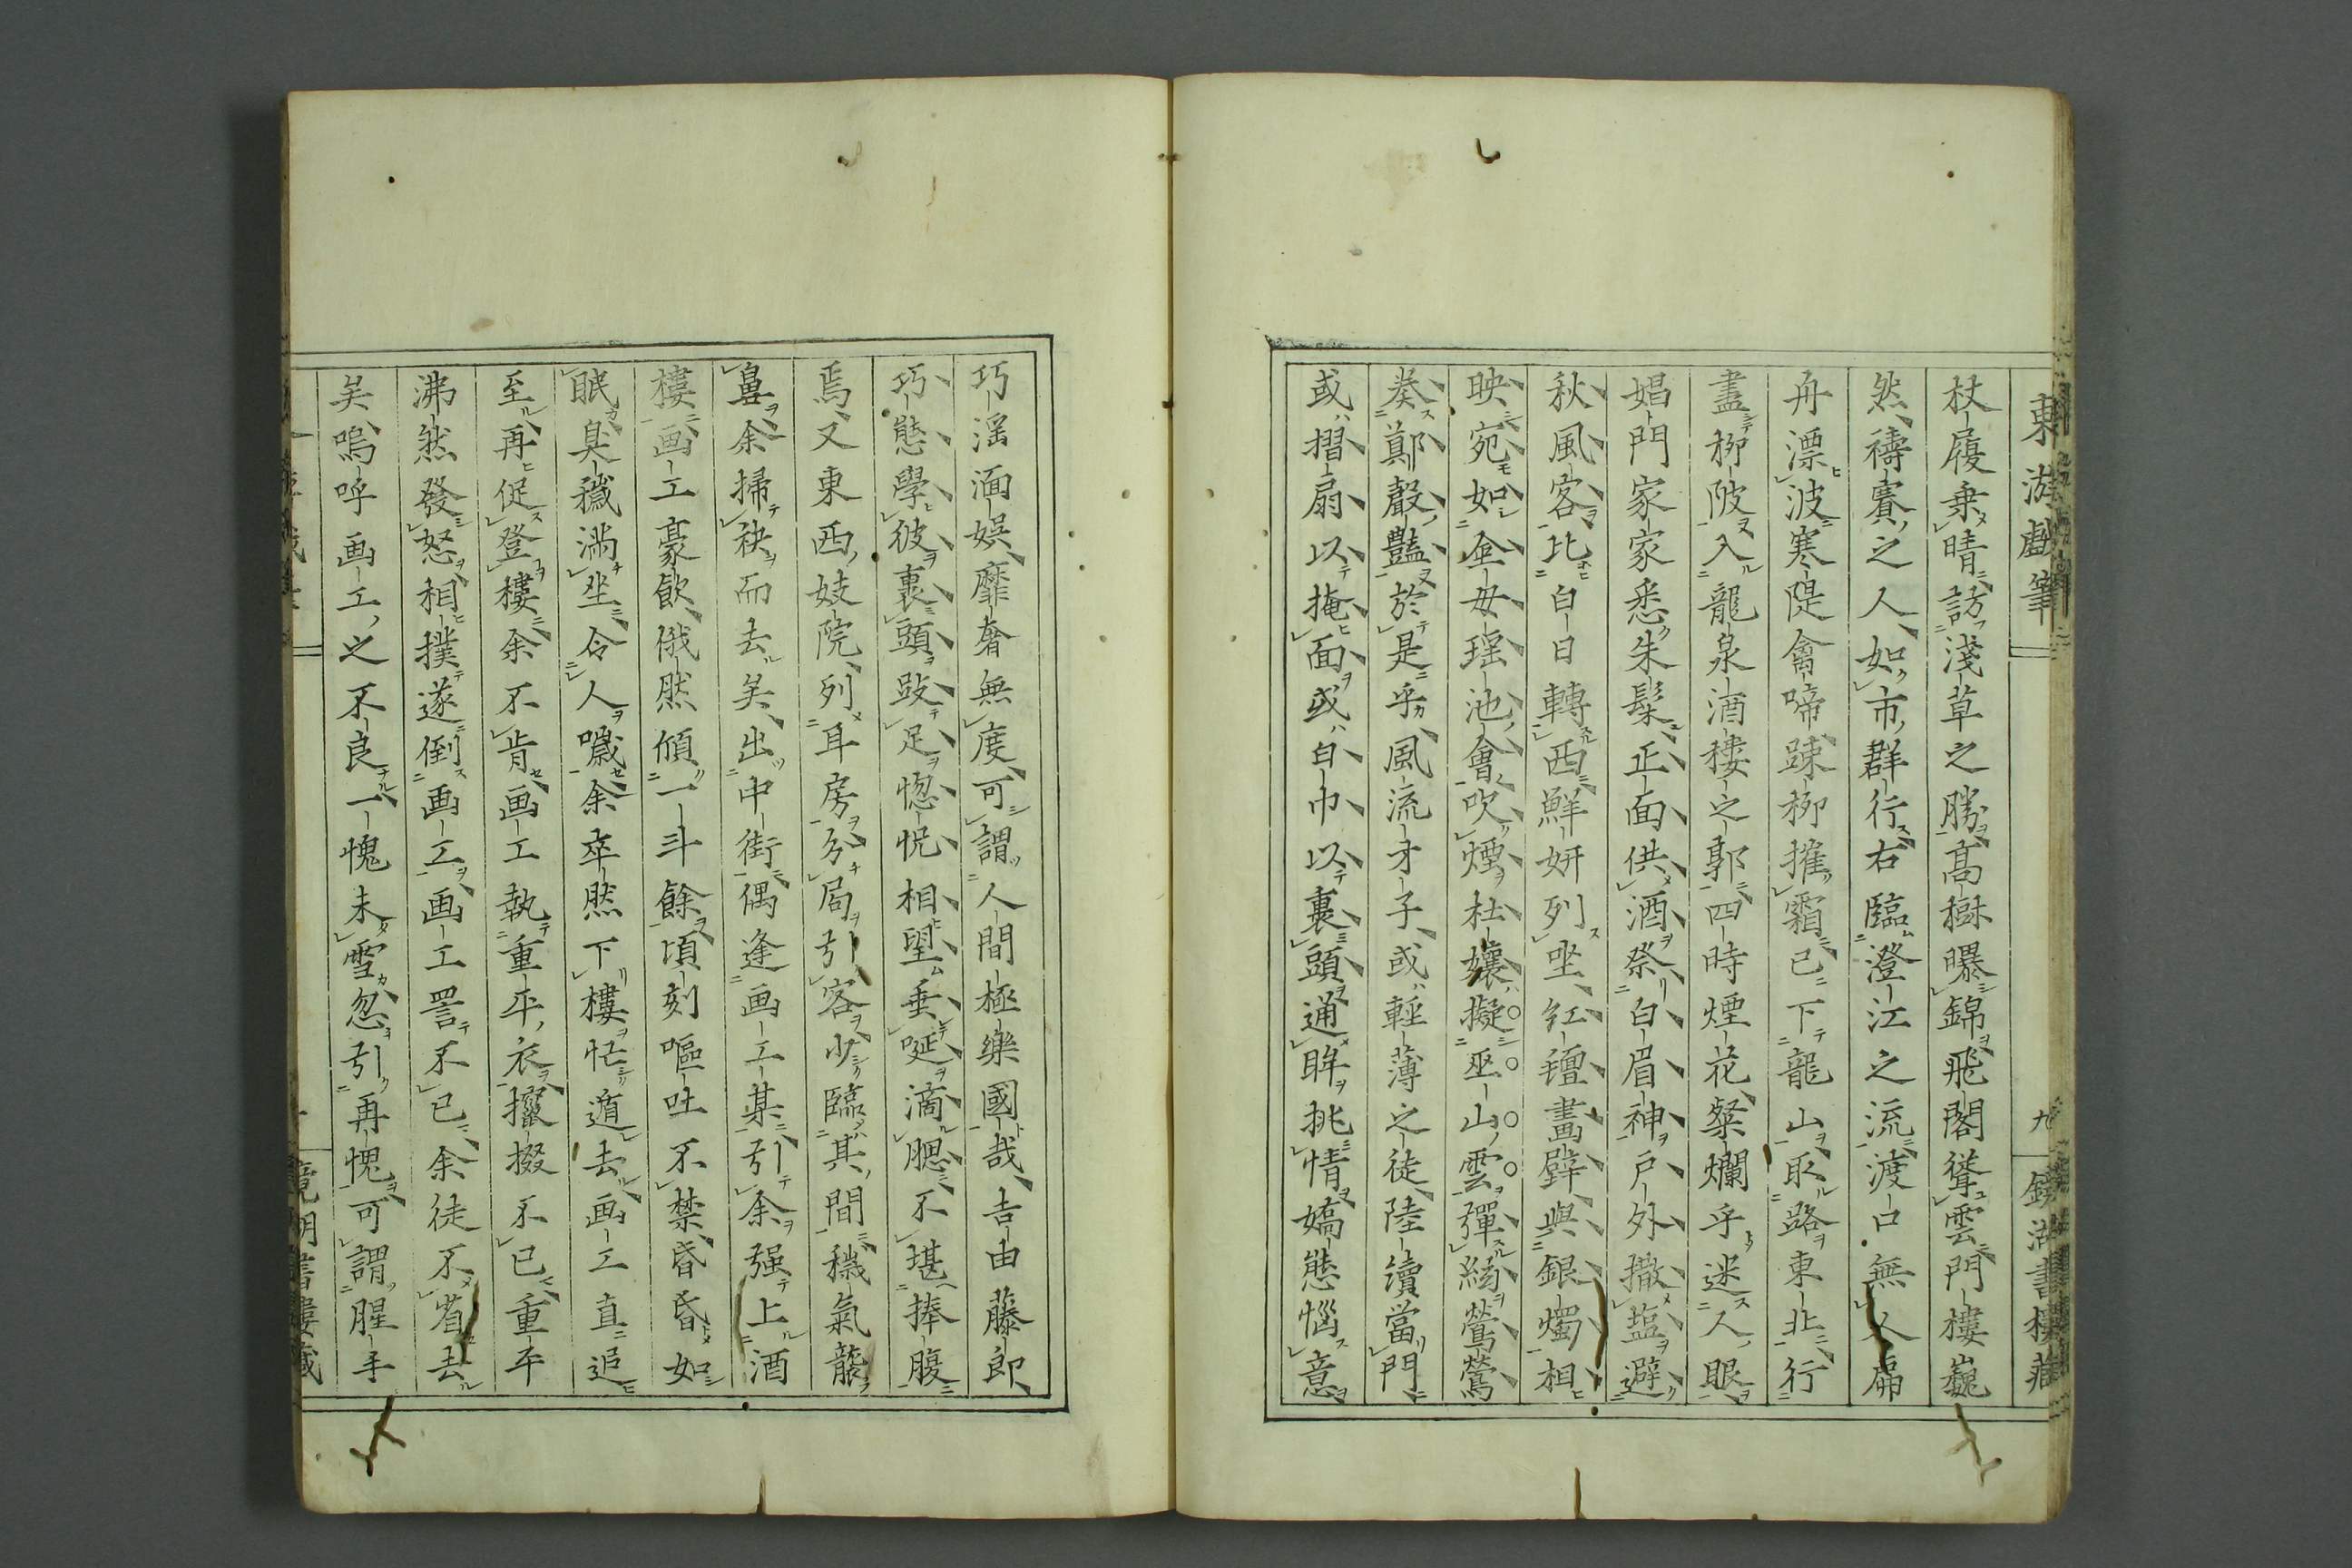 東游戯筆 九 鏡湖書樓藏
杖履乗晴訪淺草之勝髙樹曝錦飛閣聳雲門樓巍
然禱賽之人如市群行右臨澄江之流渡口無人扁
舟漂波寒隄禽啼踈栁摧霜已下龍山取路東北行
盡栁陂入龍泉酒樓之郭四時煙花粲爛乎迷人眼
娼門家家悉朱髹正面供酒祭白眉神戸外撒塩避
秋風客比白日轉西鮮妍列坐紅氊畵壁與銀燭相
映宛如金母瑶池會吹煙杜孃擬巫山雲彈絃鶯鶯
奏鄭聲豔於是乎風流才子或輕薄之徒陸續當門
或摺扇以掩面或白巾以裹頭通眸挑情嬌態惱意
巧淫湎娯靡奢無度可謂人間極樂國哉吉由藤郎
巧態學彼裹頭跂足惚怳相望垂唌滴腮不堪捧腹
焉又東西妓院列耳房分局引客少臨其間穢氣襲
鼻余掃袂而去矣出中街偶逢画工某引余强上酒
樓画工豪飲俄然傾一斗餘頃刻嘔吐不禁昏昏如
眠臭穢満坐令人噦余卒然下樓忙遁去画工直追
至再促登樓余不肯画工執重平衣攛掇不已重平
沸然發怒相撲遂倒画工画工詈不已余徒不省去
矣嗚呼画工之不良一愧未雪忽引再愧可謂腥手
鏡湖書樓藏